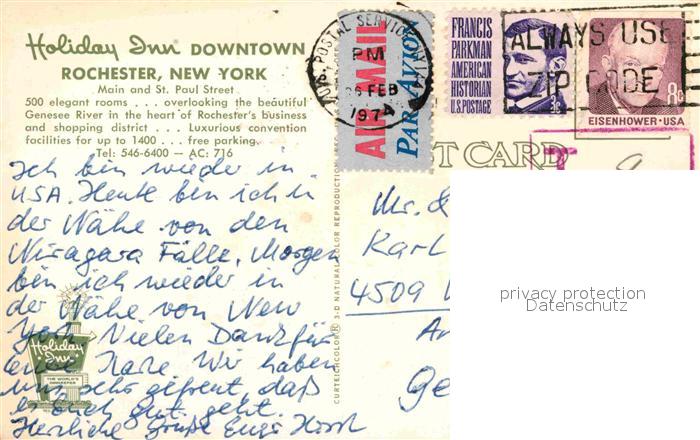 Holiday Inn DOWNTOWN
ROCHESTER, NEW YORK
Main and St. Paul Street
500 elegant rooms . . . overlooking the beautiful
Genesee River in the heart of Rochester's business
and shopping district . . . Luxurious convention
facilities for up to 1400 . . . free parking.
Tel: 546-6400 — AC: 716
Ich bin wieder in
USA. Heute bin ich in
der Nähe von den
Niragara Fälle, Morgen
bin ich wieder in
der Nähe von New
York Vielen Dank für
eure Karte Wir haben
uns sehr gefreut daß
es euch gut geht.
Herzliche Grüße Euer Horst
Holiday Inn
THE WORLD'S INNKEEPER
CURTEICHCOLOR® 3-D NATURAL COLOR REPRODUCTION
U.S. POSTAL SERVICE
PM
FEB
1974
AIR MAIL
PAR AVION
FRANCIS
PARKMAN
AMERICAN
HISTORIAN
U.S. POSTAGE
3c
ALWAYS USE
ZIP CODE
8c
EISENHOWER · USA
T CARD
T
Mr. &
Karl
4509
privacy protection
Datenschutz